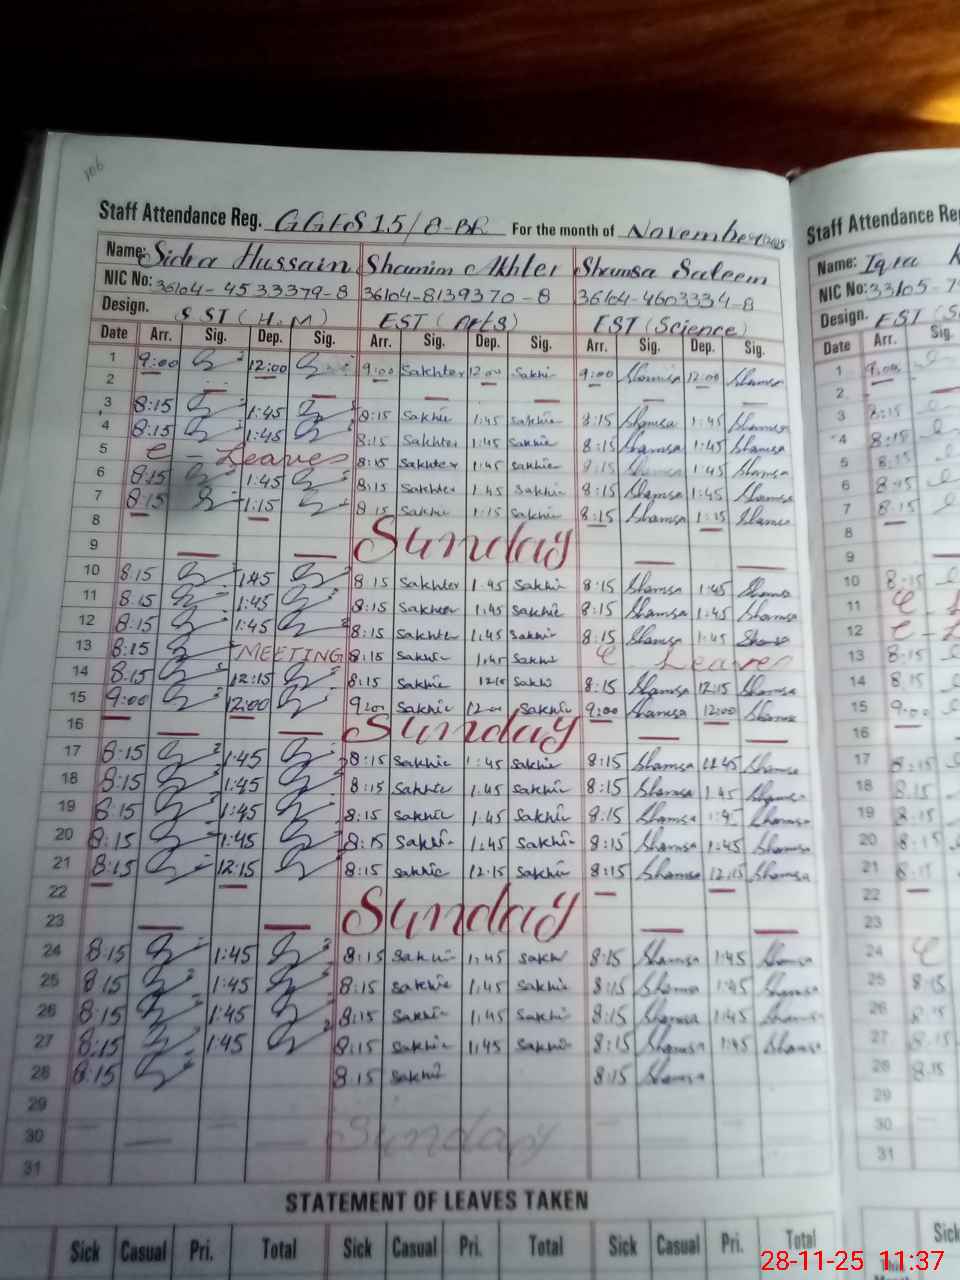 106
Staff Attendance Reg. GGES 15/8-BR For the month of November 2025
Name: Sidra Hussain Shamim Akhter Shamsa Saleem
NIC No: 36104-4533379-8 36104-8139370-8 36104-4603334-8
Design. SST (H.M) EST (Arts) EST (Science)
Date Arr. Sig. Dep. Sig. Arr. Sig. Dep. Sig. Arr. Sig. Dep. Sig.
1 9:00 12:00 9:00 Sakhter 12:00 Sakhi 9:00 Shamsa 12:00 Shamsa
2
3 8:15 1:45 8:15 Sakhi 1:45 Sakhi 8:15 Shamsa 1:45 Shamsa
4 8:15 1:45 8:15 Sakhter 1:45 Sakhi 8:15 Shamsa 1:45 Shamsa
5 C - Leaves 8:15 Sakhter 1:45 Sakhi 8:15 Shamsa 1:45 Shamsa
6 8:15 1:45 8:15 Sakhter 1:45 Sakhi 8:15 Shamsa 1:45 Shamsa
7 8:15 1:15 8:15 Sakhi 1:15 Sakhi 8:15 Shamsa 1:15 Shamsa
8
9 Sunday
10 8:15 1:45 8:15 Sakhter 1:45 Sakhi 8:15 Shamsa 1:45 Shamsa
11 8:15 1:45 8:15 Sakhter 1:45 Sakhi 8:15 Shamsa 1:45 Shamsa
12 8:15 1:45 8:15 Sakhter 1:45 Sakhi 8:15 Shamsa 1:45 Shamsa
13 8:15 MEETING 8:15 Sakhi 1:45 Sakhi C - Leaves
14 8:15 12:15 8:15 Sakhi 12:15 Sakhi 8:15 Shamsa 12:15 Shamsa
15 9:00 12:00 9:00 Sakhi 12:00 Sakhi 9:00 Shamsa 12:00 Shamsa
16 Sunday
17 8:15 1:45 8:15 Sakhi 1:45 Sakhi 8:15 Shamsa 1:45 Shamsa
18 8:15 1:45 8:15 Sakhi 1:45 Sakhi 8:15 Shamsa 1:45 Shamsa
19 8:15 1:45 8:15 Sakhi 1:45 Sakhi 8:15 Shamsa 1:45 Shamsa
20 8:15 1:45 8:15 Sakhi 1:45 Sakhi 8:15 Shamsa 1:45 Shamsa
21 8:15 12:15 8:15 Sakhi 12:15 Sakhi 8:15 Shamsa 12:15 Shamsa
22
23 Sunday
24 8:15 1:45 8:15 Sakhi 1:45 Sakhi 8:15 Shamsa 1:45 Shamsa
25 8:15 1:45 8:15 Sakhi 1:45 Sakhi 8:15 Shamsa 1:45 Shamsa
26 8:15 1:45 8:15 Sakhi 1:45 Sakhi 8:15 Shamsa 1:45 Shamsa
27 8:15 1:45 8:15 Sakhi 1:45 Sakhi 8:15 Shamsa 1:45 Shamsa
28 8:15 8:15 Sakhi 8:15 Shamsa
29
30 Sunday
31
STATEMENT OF LEAVES TAKEN
Sick Casual Pri. Total Sick Casual Pri. Total Sick Casual Pri. Total
Staff Attendance Re
Name: Iqra
NIC No: 33105-7
Design. EST (S
Date Arr. Sig.
1 9:00
2
3 8:15
4 8:15
5 8:15
6 8:15
7 8:15
8
9
10 8:15
11 C - L
12 C - L
13 8:15
14 8:15
15 9:00
16
17 8:15
18 8:15
19 8:15
20 8:15
21 8:15
22
23
24 C
25 8:15
26 8:15
27 8:15
28 8:15
29
30
31
Sick
28-11-25 11:37